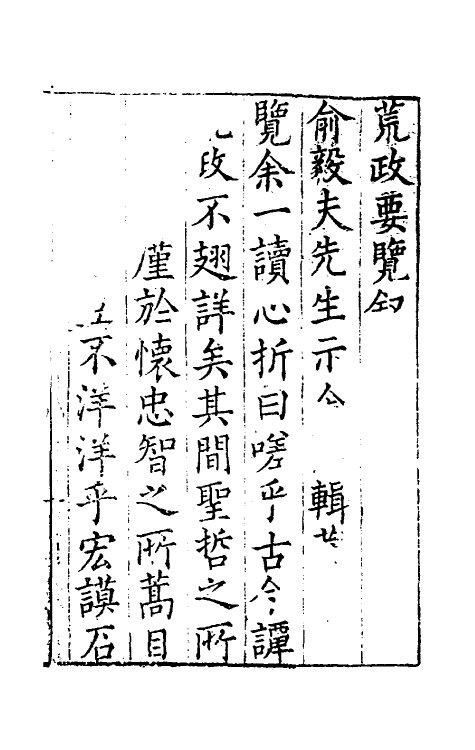 荒政要覽
俞毅夫先生示　輯
覽余一讀心折曰嗟乎古今譚
政不翅詳矣其間聖哲之所
僅於懷忠智之所蒿目
不洋洋乎宏謨石